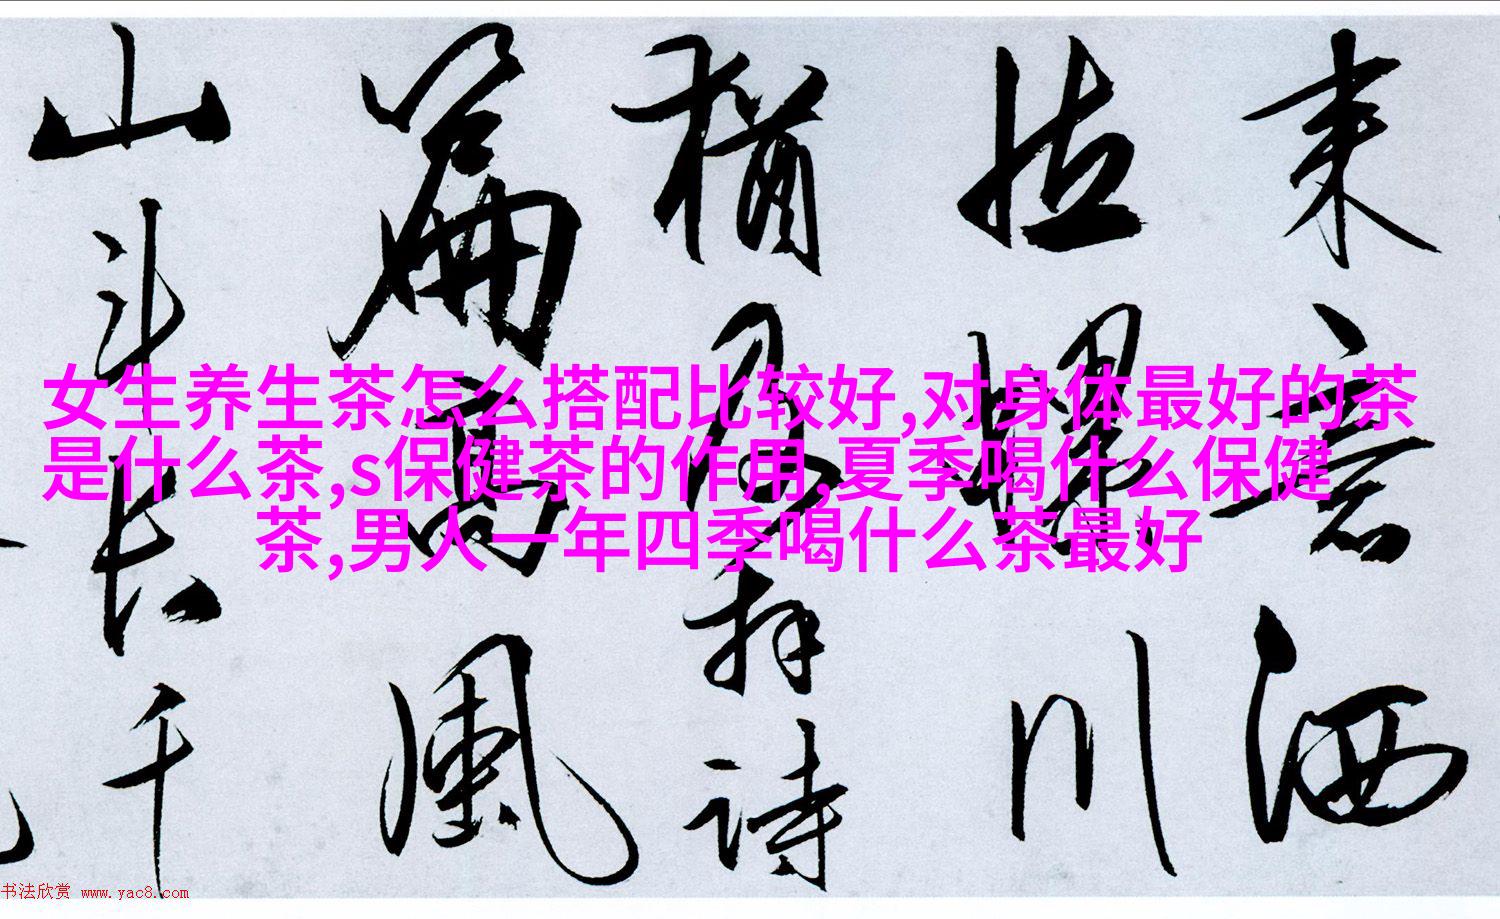 来意洒
拈
川
猶及拜詩
篇高風
山斗長千
女生养生茶怎么搭配比较好,对身体最好的茶
是什么茶,s保健茶的作用,夏季喝什么保健
茶,男人一年四季喝什么茶最好
书法欣赏 www.yac8.com